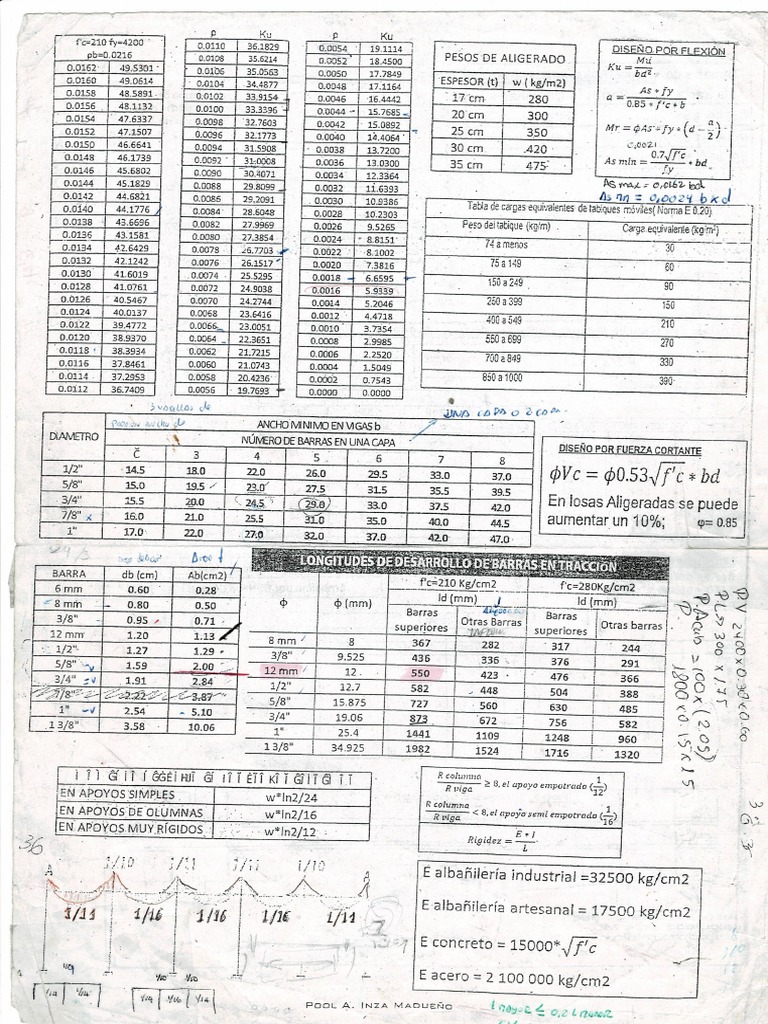 f'c=210 fy=4200
ρb=0.0216
0.0162 49.5301
0.0160 49.0614
0.0158 48.5891
0.0156 48.1132
0.0154 47.6337
0.0152 47.1507
0.0150 46.6641
0.0148 46.1739
0.0146 45.6802
0.0144 45.1829
0.0142 44.6821
0.0140 44.1776
0.0138 43.6696
0.0136 43.1581
0.0134 42.6429
0.0132 42.1242
0.0130 41.6019
0.0128 41.0761
0.0126 40.5467
0.0124 40.0137
0.0122 39.4772
0.0120 38.9370
0.0118 38.3934
0.0116 37.8461
0.0114 37.2953
0.0112 36.7409
ρ Ku
0.0110 36.1829
0.0108 35.6214
0.0106 35.0563
0.0104 34.4877
0.0102 33.9154
0.0100 33.3396
0.0098 32.7603
0.0096 32.1773
0.0094 31.5908
0.0092 31.0008
0.0090 30.4071
0.0088 29.8099
0.0086 29.2091
0.0084 28.6048
0.0082 27.9969
0.0080 27.3854
0.0078 26.7703
0.0076 26.1517
0.0074 25.5295
0.0072 24.9038
0.0070 24.2744
0.0068 23.6416
0.0066 23.0051
0.0064 22.3651
0.0062 21.7215
0.0060 21.0743
0.0058 20.4236
0.0056 19.7693
ρ Ku
0.0054 19.1114
0.0052 18.4500
0.0050 17.7849
0.0048 17.1164
0.0046 16.4442
0.0044 15.7685
0.0042 15.0892
0.0040 14.4064
0.0038 13.7200
0.0036 13.0300
0.0034 12.3364
0.0032 11.6393
0.0030 10.9386
0.0028 10.2303
0.0026 9.5265
0.0024 8.8151
0.0022 8.1002
0.0020 7.3816
0.0018 6.6595
0.0016 5.9339
0.0014 5.2046
0.0012 4.4718
0.0010 3.7354
0.0008 2.9985
0.0006 2.2520
0.0004 1.5049
0.0002 0.7543
0.0000 0.0000
PESOS DE ALIGERADO
ESPESOR (t) w ( kg/m2)
17 cm 280
20 cm 300
25 cm 350
30 cm 420
35 cm 475
DISEÑO POR FLEXIÓN
Ku = Mu / bd²
a = As * fy / 0.85 * f'c * b
Mr = ϕAs * fy * (d − a/2)
0.0021
As min = 0.7√f'c / fy * bd
As max = 0,0162 bd
As mn = 0,0024 b x d
Tabla de cargas equivalentes de tabiques móviles( Norma E 0.20)
Peso del tabique (kg/m) Carga equivalente (kg/m²)
74 a menos 30
75 a 149 60
150 a 249 90
250 a 399 150
400 a 549 210
550 a 699 270
700 a 849 330
850 a 1000 390
DIAMETRO ANCHO MINIMO EN VIGAS b
NÚMERO DE BARRAS EN UNA CAPA
3 4 5 6 7 8
1/2" 14.5 18.0 22.0 26.0 29.5 33.0 37.0
5/8" 15.0 19.5 23.0 27.5 31.5 35.5 39.5
3/4" 15.5 20.0 24.5 29.0 33.0 37.5 42.0
7/8" x 16.0 21.0 25.5 31.0 35.0 40.0 44.5
1" 17.0 22.0 27.0 32.0 37.0 42.0 47.0
DISEÑO POR FUERZA CORTANTE
ϕVc = ϕ0.53√f'c * bd
En losas Aligeradas se puede
aumentar un 10%; φ= 0.85
BARRA db (cm) Ab(cm2)
6 mm 0.60 0.28
8 mm 0.80 0.50
3/8" 0.95 0.71
12 mm 1.20 1.13
1/2" 1.27 1.29
5/8" 1.59 2.00
3/4" 1.91 2.84
7/8" 2.22 3.87
1" 2.54 5.10
1 3/8" 3.58 10.06
LONGITUDES DE DESARROLLO DE BARRAS EN TRACCIÓN
ϕ ϕ (mm) f'c=210 Kg/cm2 f'c=280Kg/cm2
ld (mm) ld (mm)
Barras superiores Otras Barras Barras superiores Otras barras
8 mm 8 367 282 317 244
3/8" 9.525 436 336 376 291
12 mm 12 550 423 476 366
1/2" 12.7 582 448 504 388
5/8" 15.875 727 560 630 485
3/4" 19.06 873 672 756 582
1" 25.4 1441 1109 1248 960
1 3/8" 34.925 1982 1524 1716 1320
PV 2400 x 0.30 x 0.60
PL = 300 x 1.75
P Acab = 100 x (2.05)
P 1800 x 0.15 x 15
EN APOYOS SIMPLES w*ln2/24
EN APOYOS DE OLUMNAS w*ln2/16
EN APOYOS MUY RÍGIDOS w*ln2/12
R columna / R viga ≥ 8, el apoyo empotrado (1/12)
R columna / R viga < 8, el apoyo semi empotrado (1/16)
Rigidez = E * I / L
36
1/10 1/11 1/11 1/10
A A
1/11 1/16 1/16 1/16 1/11
E albañilería industrial =32500 kg/cm2
E albañilería artesanal = 17500 kg/cm2
E concreto = 15000*√f'c
E acero = 2 100 000 kg/cm2
POOL A. INZA MADUEÑO